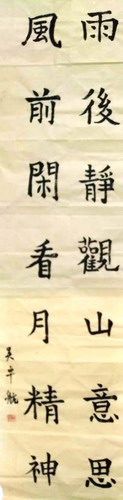 雨後靜觀山意思
風前閑看月精神